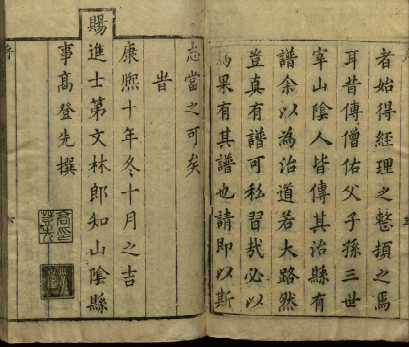 者始得經理之整頓之焉
耳昔傳僧佑父子孫三世
宰山陰人皆傳其治縣有
譜余以為治道若大路然
豈真有譜可私習哉必以
為果有其譜也請即以斯
志當之可矣
旹
康熙十年冬十月之吉
賜進士第文林郎知山陰縣
事高登先撰